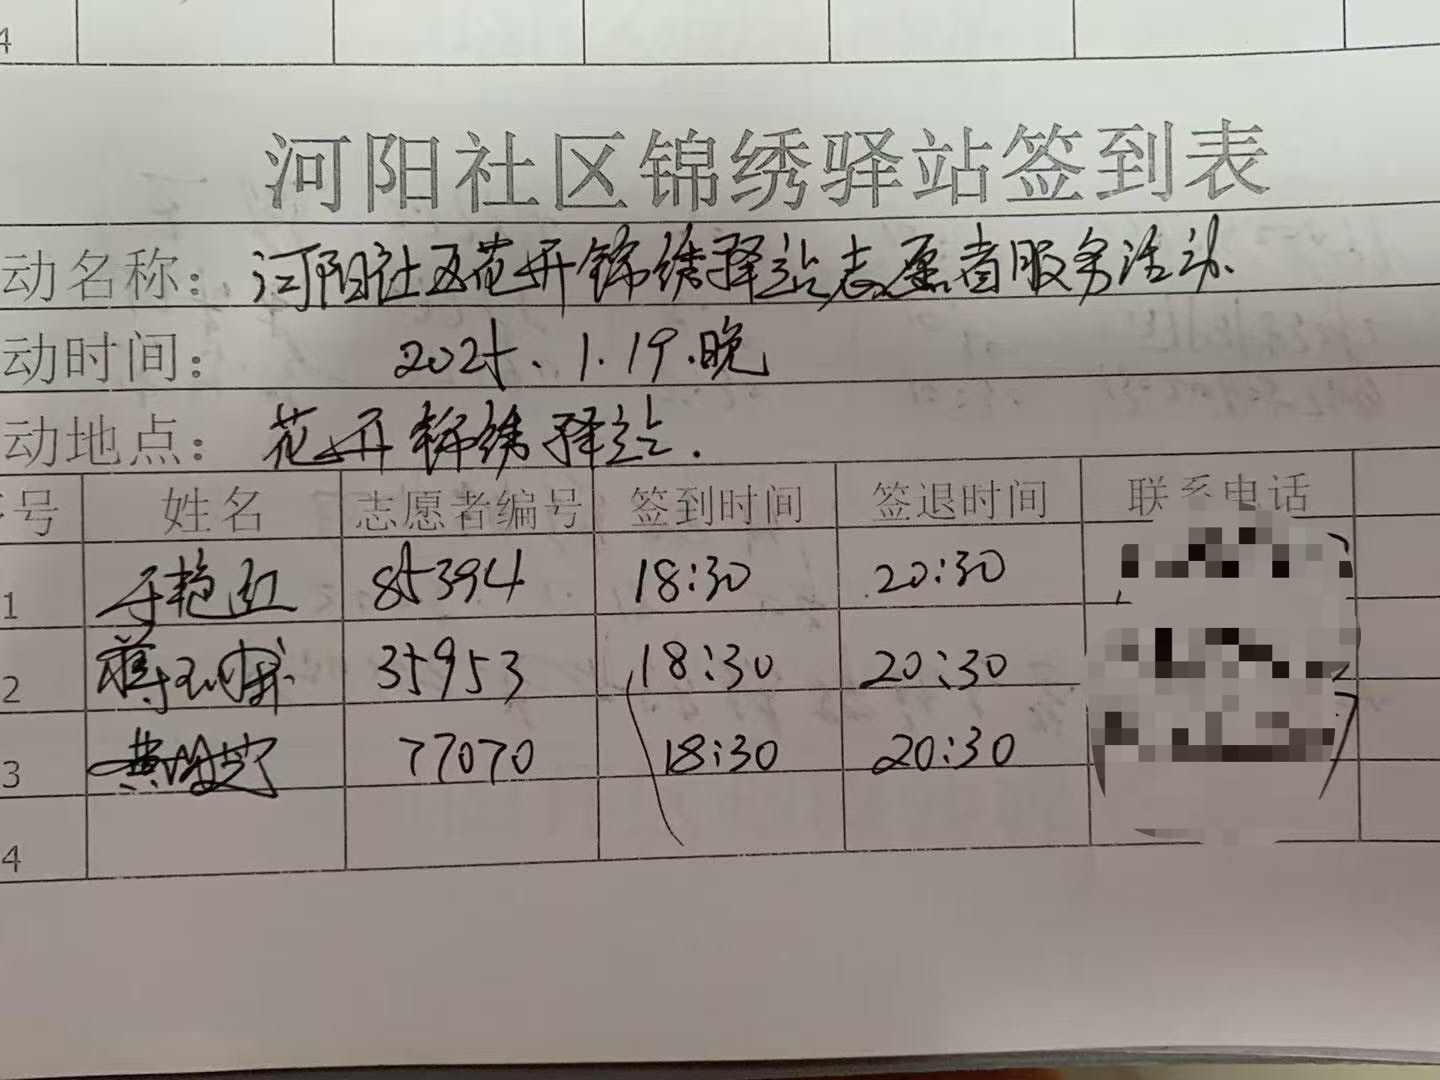 4
河阳社区锦绣驿站签到表
动名称：河阳社区花开锦绣驿站志愿者服务活动.
动时间：2025.1.19.晚
动地点：花开锦绣驿站.
号 姓名 志愿者编号 签到时间 签退时间 联系电话
1 于艳红 85394 18:30 20:30
2 蒋 35953 18:30 20:30
3 黄 77070 18:30 20:30
4